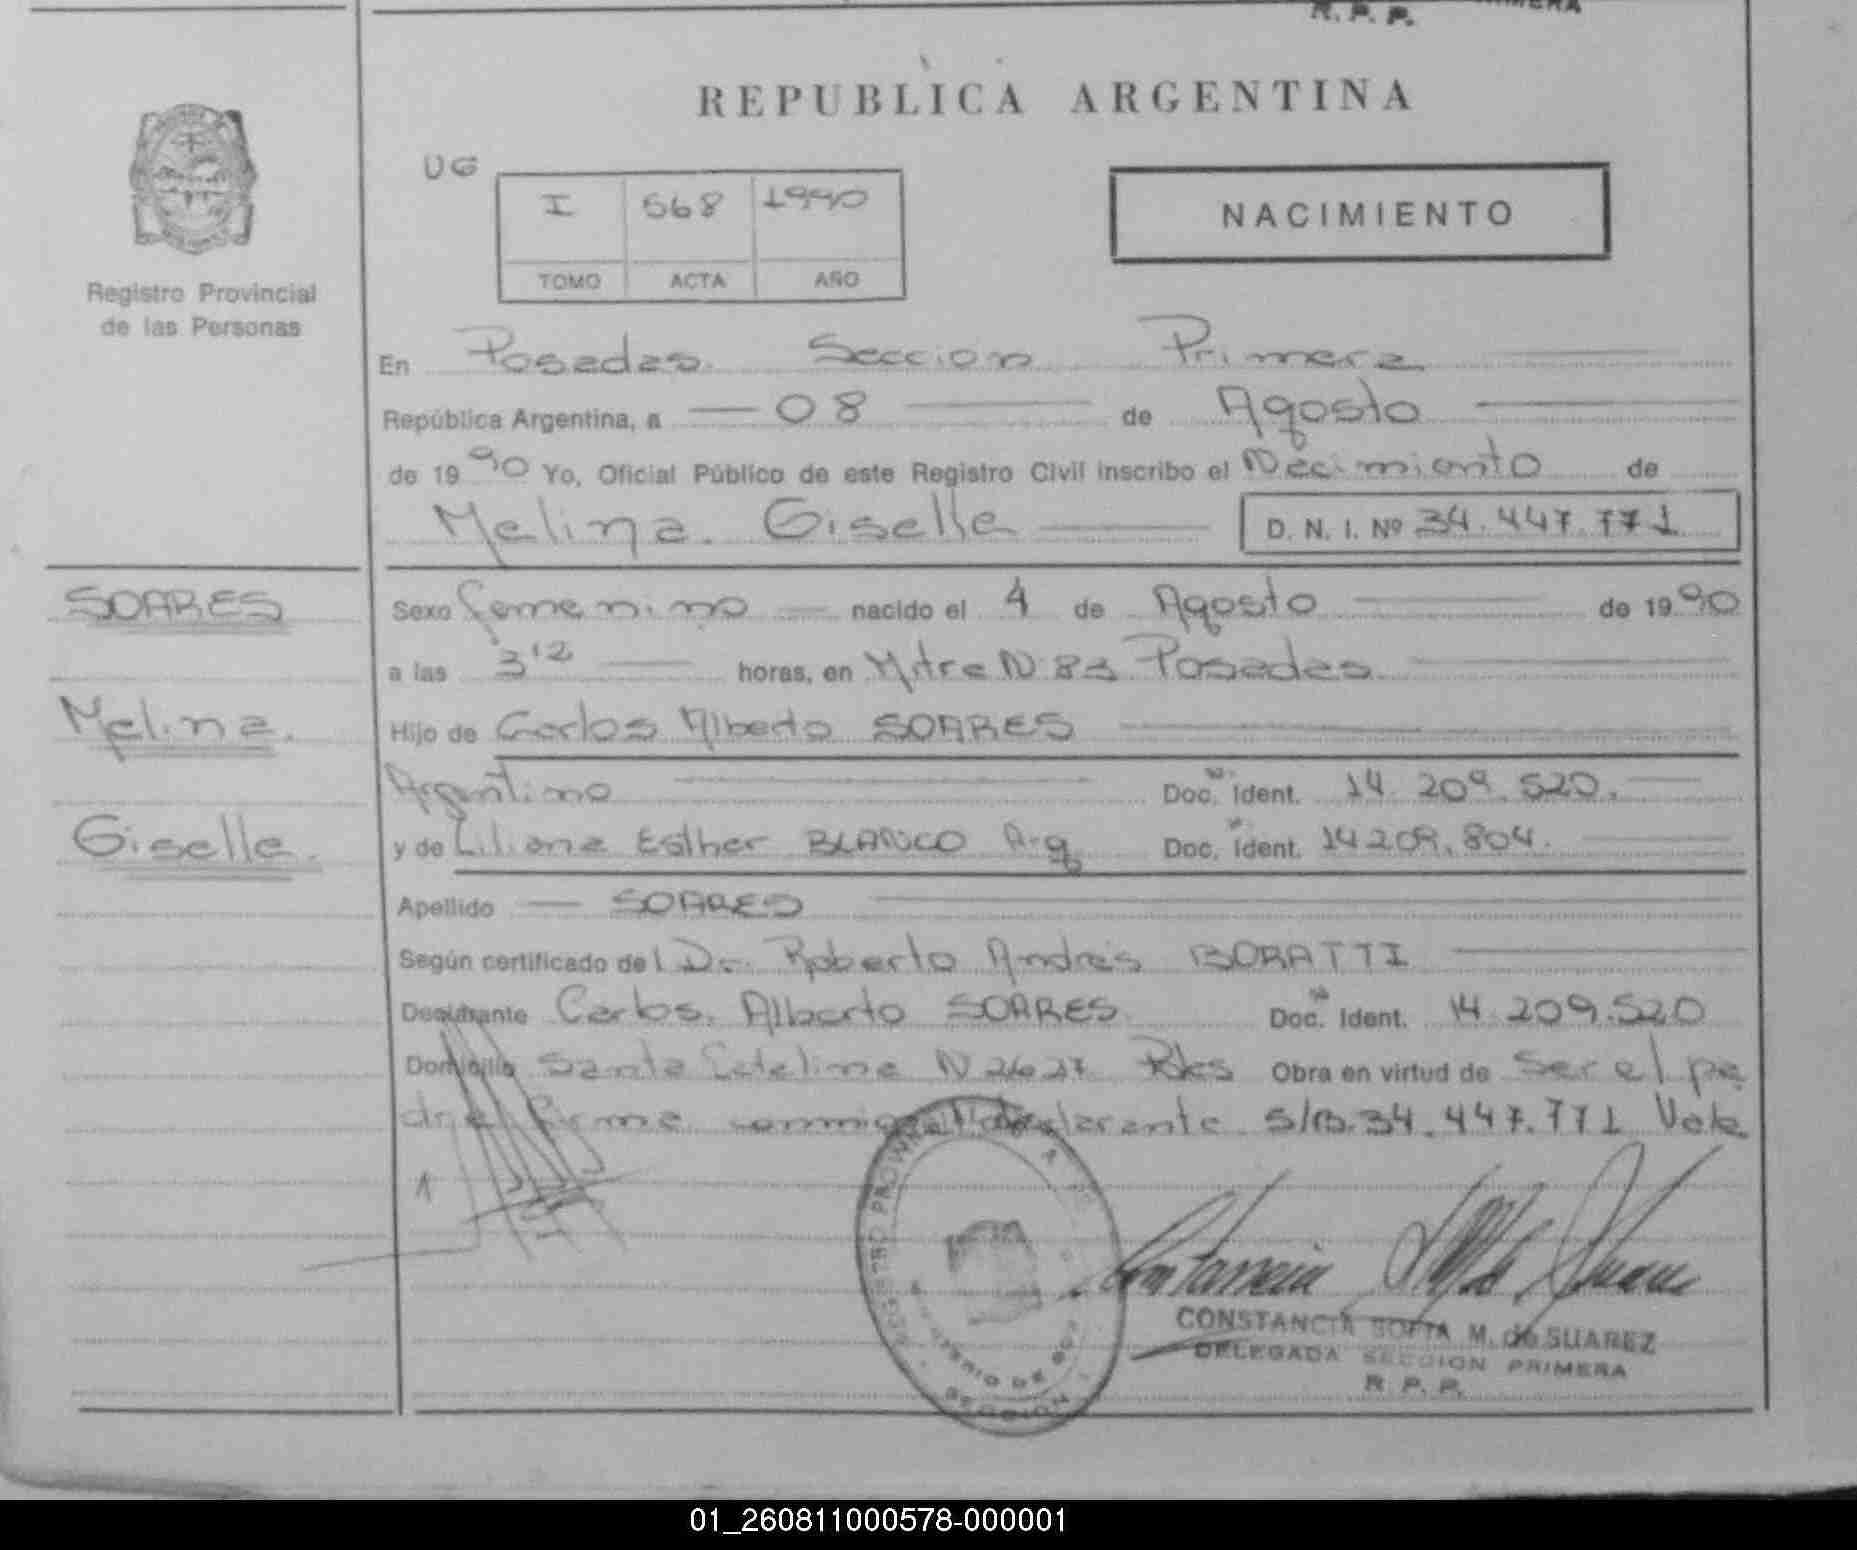 R. P. P.
REPUBLICA ARGENTINA
UG
I 568 1990
TOMO ACTA AÑO
NACIMIENTO
Registro Provincial
de las Personas
En Posadas. Seccion Primera
República Argentina, a 08 de Agosto
de 1990 Yo, Oficial Público de este Registro Civil inscribo el Nacimiento de
Melina Giselle D. N. I. Nº 34.447.771
SOARES
Melina
Giselle.
Sexo femenino nacido el 4 de Agosto de 1990
a las 3 12 horas, en Mitre N 83 Posadas
Hijo de Carlos Alberto SOARES
Argentino Doc. Ident. 14.209.520.
y de Liliana Esther BLANCO Arg Doc. Ident. 14209.804.
Apellido SOARES
Según certificado del Dr. Roberto Andrés BORATTI
Declarante Carlos Alberto SOARES Doc. Ident. 14.209.520
Domicilio Santa Catalina N 2627 Pdas Obra en virtud de ser el pa
dre firma conmigo el declarante S/B.34.447.771 Vale
REGISTRO
MINISTERIO DE
SECCION
CONSTANCIA SOFIA M. de SUAREZ
DELEGADA SECCION PRIMERA
R. P. P.
01_260811000578-000001